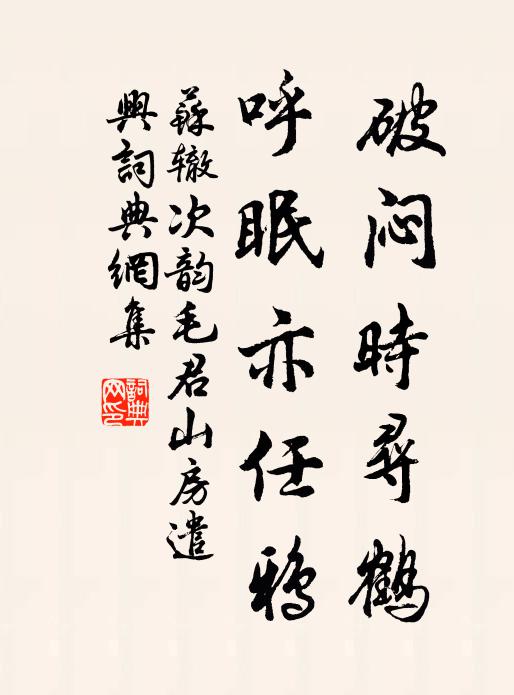 破闷時尋鶴
呼眠亦任鴉
蘇辙次韵毛君山房遣
興詞典網集
詞典
网印